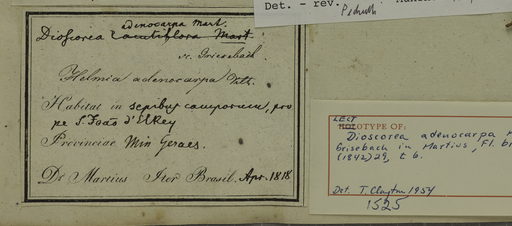 Det. - rev.
adenocarpa Mart.
Dioscorea Mart.
sc. Griesebach.
Helmia adenocarpa Kth.
Habitat in sepibus camporum, pro
pe S. João d'El Rey
Provinciae Min Geraes.
Dr Martius Iter Brasil. Apr. 1818
LECT
HOLOTYPE OF:
Dioscorea adenocarpa
Grisebach in Martius, Fl. br
(1842) 29, t. 6.
Det. T. Clayton 1954
1525